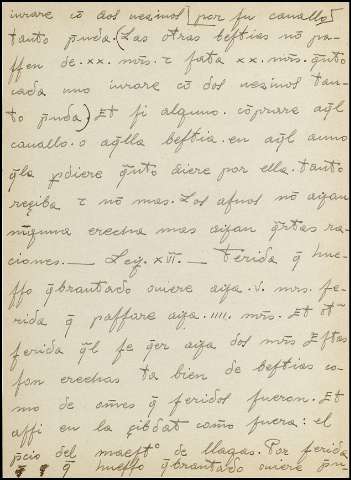 iurare cō dos uezinos [por su cauallo]
tanto p̄nda. (Las otras bestias nō pa-
ssen de .xx. mr̄s. τ fata xx. mr̄s. q̄nto
cada uno iurare cō dos uezinos tan-
to p̄nda.) Et si alguno. cōprare aq̄l
cauallo. o aq̄lla bestia. en aq̄l anno
q̄la pdiere q̄nto diere por ella. tanto
reçiba τ nō mas. Los asnos nō ayan
ninguna erecha mas ayan q̄rtas ra-
ciones. — Ley. xvii. — Ferida q̄ hue-
sso q̄brantado ouiere aya .v. mr̄s. fe-
rida q̄ passare aya .iiii. mr̄s. Et ot̄
ferida q̄l se q̄er aya dos mr̄s Estas
son erechas ta bien de bestias co-
mo de om̄es q̄ feridos fueron. Et
assi en la çibdat como fuera: el
p̄cio del maest° de llagas. Por ferida
q̄ huesso q̄brantado ouiere p̄n-